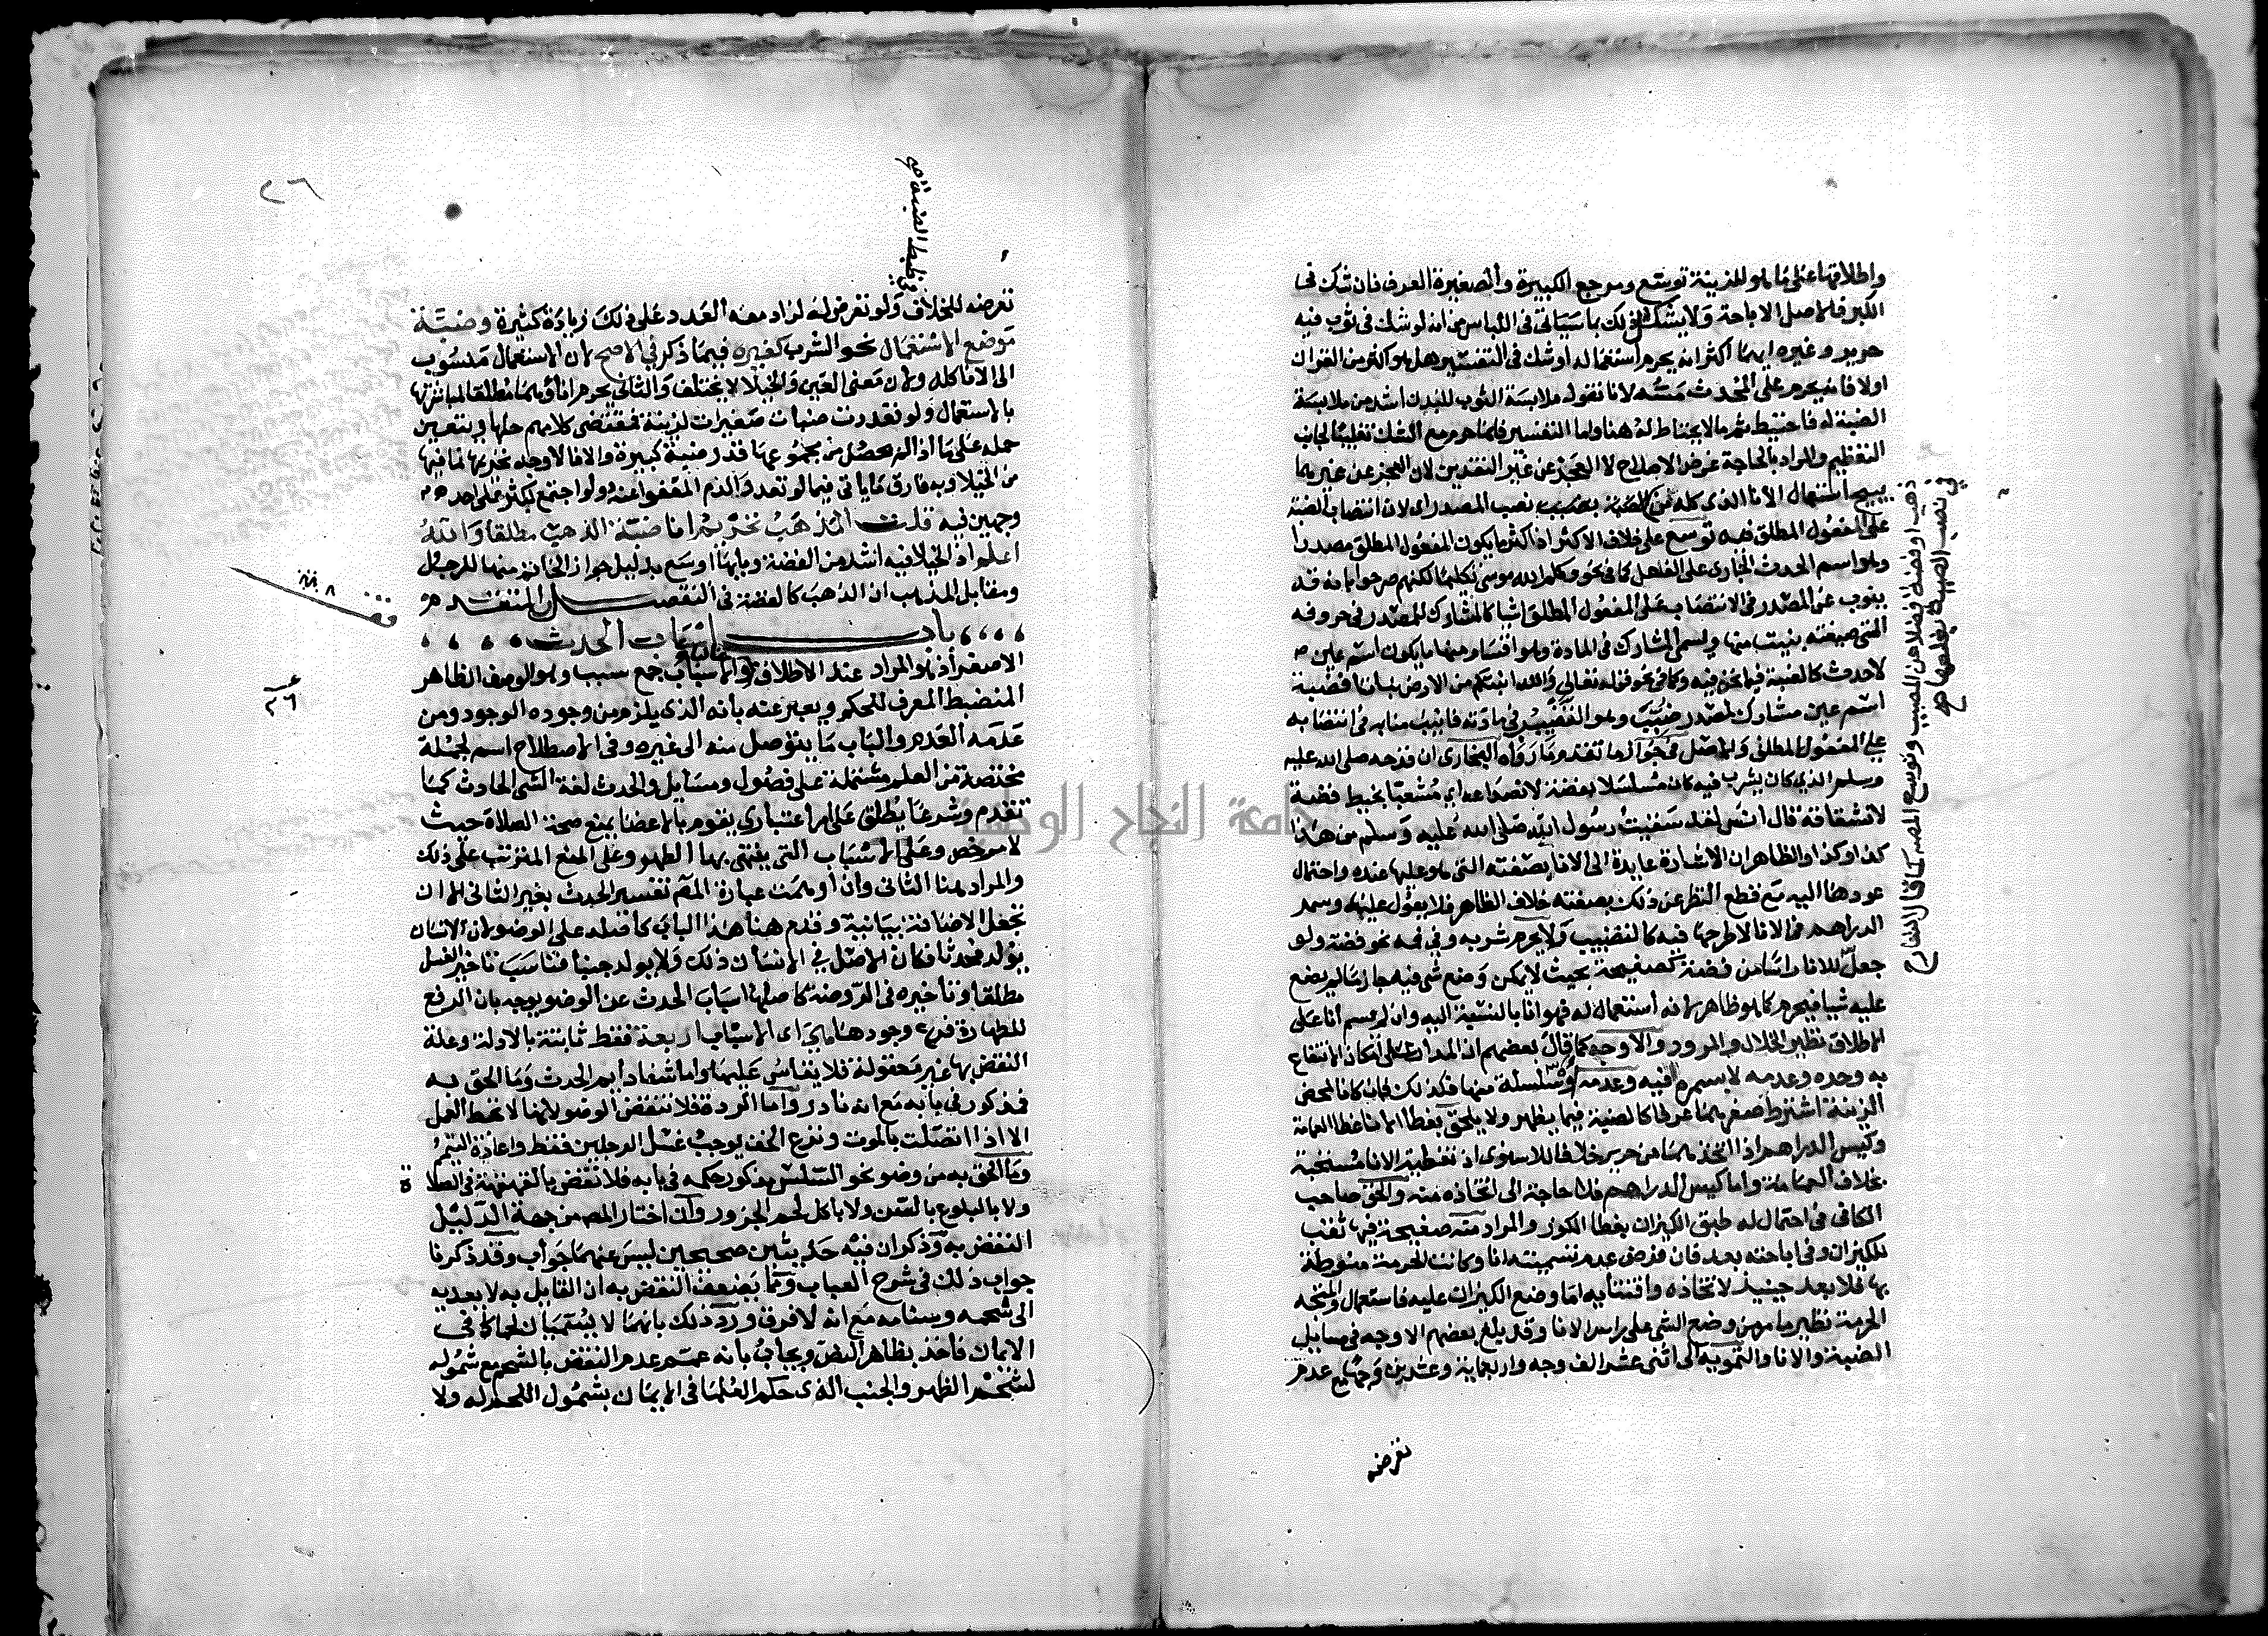 واطلاقها على ما هو للزينة توسع ومرجع الكبيرة والصغيرة العرف فان شك في
الكبر فالاصل الاباحة ولا يشكل ذلك بما سياتي في اللباس من انه لو شك في ثوب فيه
حرير وغيره ايهما اكثر انه يحرم استعماله او شك في التفسير هل هو اكثر من القران
اولا فانه يحرم على المحدث مسه لانا نقول ملابسة الثوب للبدن اشد من ملابسة
الضبة له فاحتيط ثم ما لا يحتاط له هنا واما التفسير فانما حرم مع الشك تغليبا لجانب
التعظيم والمراد بالحاجة غرض الاصلاح لا العجز عن غير النقدين لان العجز عن غيرهما
يبيح استعمال الاناء الذي كله من الضبة بضبب نصب المصدر اي لان انتصاب الضبة
على المفعول المطلق فيه توسع على خلاف الاكثر اذ اكثر ما يكون المفعول المطلق مصدرا
وهو اسم الحدث الجاري على الفعل كما في نحو وكلم الله موسى تكليما لكنهم صرحوا بانه قد
ينوب عن المصدر في الانتصاب على المفعول المطلق اشيا كالمشارك للمصدر في حروفه
التي صيغته بنيت منها ويسمى المشارك في المادة وهو اقسام منها ما يكون اسم عين
لا حدث كالضبة فيما نحن فيه وكما في نحو قوله تعالى والله انبتكم من الارض نباتا فضبة
اسم عين مشارك لمصدر ضبب وهو التضبيب في مادته فانيب منابه في انتصابه
على المفعول المطلق والاصل في جواز ما تقدم ما رواه البخاري ان قدحه صلى الله عليه
وسلم الذي كان يشرب فيه كان مسلسلا بفضة لانصداعه اي مشعبا بخيط فضة
لانشقاقه قال انس لقد سقيت رسول الله صلى الله عليه وسلم من هذا
كذا وكذا والظاهر ان الاشارة عايدة الى الاناء بصفته التي هو عليها عنده واحتمال
عودها اليه مع قطع النظر عن ذلك بصفته خلاف الظاهر فلا يعول عليه وسمر
الدراهم في الاناء لا طرحها فيه كالتضبيب ولا يحرم شربه وفي فمه نحو فضة ولو
جعل للاناء راسا من فضة كصفيحة بحيث لا يمكن وضع شي فيه جاز ما لم يضع
عليه شيا فيحرم كما هو ظاهر لانه استعمال له فهو اناء بالنسبة اليه وان لم يسم اناء على
الاطلاق نظير الخلال والمرود والاوجه كما قال بعضهم ان المدار على امكان الانتفاع
به وحده وعدمه لا بسمره فيه وعدمه وسلسلة منها فكذلك فان كانا لمحض
الزينة اشترط صغرهما عرفا كالضبة فيما يظهر ولا يلحق بغطاء الاناء غطاء العمامة
وكيس الدراهم اذا اتخذهما من حرير خلافا للاسنوي اذ تغطية الاناء مستحبة
بخلاف العمامة واما كيس الدراهم فلا حاجة الى اتخاذه منه والحق صاحب
الكافي في احتمال له طبق الكيزان بغطاء الكوز والمراد منه صفيحة فيها ثقب
للكيزان وفي اباحته بعد فان فرض عدم تسميته اناء وكانت الحرمة منوطة
بها فلا بعد حينئذ لاتخاذه واقتنايه اما وضع الكيزان عليه فاستعمال والمتجه
الحرمة نظير ما مر من وضع الشي على راس الاناء وقد بلغ بعضهم الاوجه في مسايل
الضبة والاناء والتمويه الى اثني عشر الف وجه واربعماية وعشرين وجها مع عدم
ذهب او فضة فضلا عن الضبب وتوسع المص
في نصب الضبة بفعلها صح
تعرضه
ضابط الضبة صح
٢٦
تعرضه للخلاف ولو تعرض له لزاد معه العدد على ذلك زيادة كثيرة وضبة
موضع الاستعمال نحو الشرب كغيره فيما ذكر في الاصح لان الاستعمال منسوب
الى الاناء كله ولان معنى العين والخيلا لا يختلف والثاني يحرم اناؤهما مطلقا لمباشرتها
بالاستعمال ولو تعددت ضبات صغيرات لزينة فمقتضى كلامهم حلها ويتعين
حمله على ما اذا لم يحصل من مجموعها قدر ضبة كبيرة والا فالاوجه تحريمها لما فيها
من الخيلا وبه فارق ما ياتي فيما لو تعدد الدم المعفو عنه ولو اجتمع لكثر على احد
وجهين فيه قلت المذهب تحريم اناء ضبة الذهب مطلقا والله
اعلم اذ الخيلا فيه اشد من الفضة وبابها اوسع بدليل جواز الخاتم منها للرجل
ومقابل المذهب ان الذهب كالفضة في التفصيل المتقدم
باب اسباب الحدث
الاصغر اذ هو المراد عند الاطلاق غالبا والاسباب جمع سبب وهو الوصف الظاهر
المنضبط المعرف للحكم ويعبر عنه بانه الذي يلزم من وجوده الوجود ومن
عدمه العدم والباب ما يتوصل منه الى غيره وفي الاصطلاح اسم لجملة
مختصة من العلم مشتملة على فصول ومسايل والحدث لغة الشي الحادث كما
تقدم وشرعا يطلق على امر اعتباري يقوم بالاعضا يمنع صحة الصلاة حيث
لا مرخص وعلى الاسباب التي ينتهي بها الطهر وعلى المنع المترتب على ذلك
والمراد هنا الثاني وان اوهمت عبارة المص تفسير الحدث بغير الثاني الا ان
تجعل الاضافة بيانية وقدم هنا هذا الباب كاصله على الوضو لان الانسان
يولد محدثا فكان الاصل في الانسان ذلك ولا يولد جنبا فناسب تاخير الغسل
مطلقا وتاخيره في الروضة كاصلها اسباب الحدث عن الوضو يوجه بان الرفع
للطهارة فرع وجودها هي اي الاسباب اربعة فقط ثابتة بالادلة وعلة
النقض بها غير معقولة فلا يقاس عليها واما شفا دايم الحدث وما الحق به
فمذكور في بابه مع انه نادر واما الردة فلا تنقض الوضو لانها لا تحبط العمل
الا اذا اتصلت بالموت ونزع الخف يوجب غسل الرجلين فقط واعادة التيمم
وما الحق به من وضو نحو السلس مذكور حكمه في بابه فلا نقض بالقهقهة في الصلاة
ولا بالبلوغ بالسن ولا باكل لحم الجزور وان اختار المص من جهة الدليل
النقض به وذكر ان فيه حديثين صحيحين ليس عنهما جواب وقد ذكرنا
جواب ذلك في شرح العباب ومما يضعف النقض به ان القايل به لا يعديه
الى شحمه وسنامه مع انه لا فرق ورد ذلك بانهما لا يسميان لحما كما في
الايمان فاخذ بظاهر النص ويجاب بانه عمم عدم النقض بالشحم مع شموله
لشحم الظهر والجنب الذي حكم العلما في الايمان بشمول اللحم له ولا